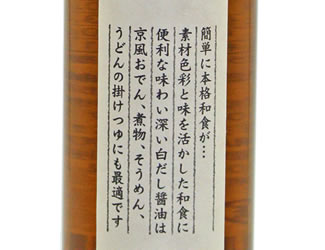 簡単に本格和食が…
素材色彩と味を活かした和食に
便利な味わい深い白だし醤油は
京風おでん、煮物、そうめん、
うどんの掛けつゆにも最適です